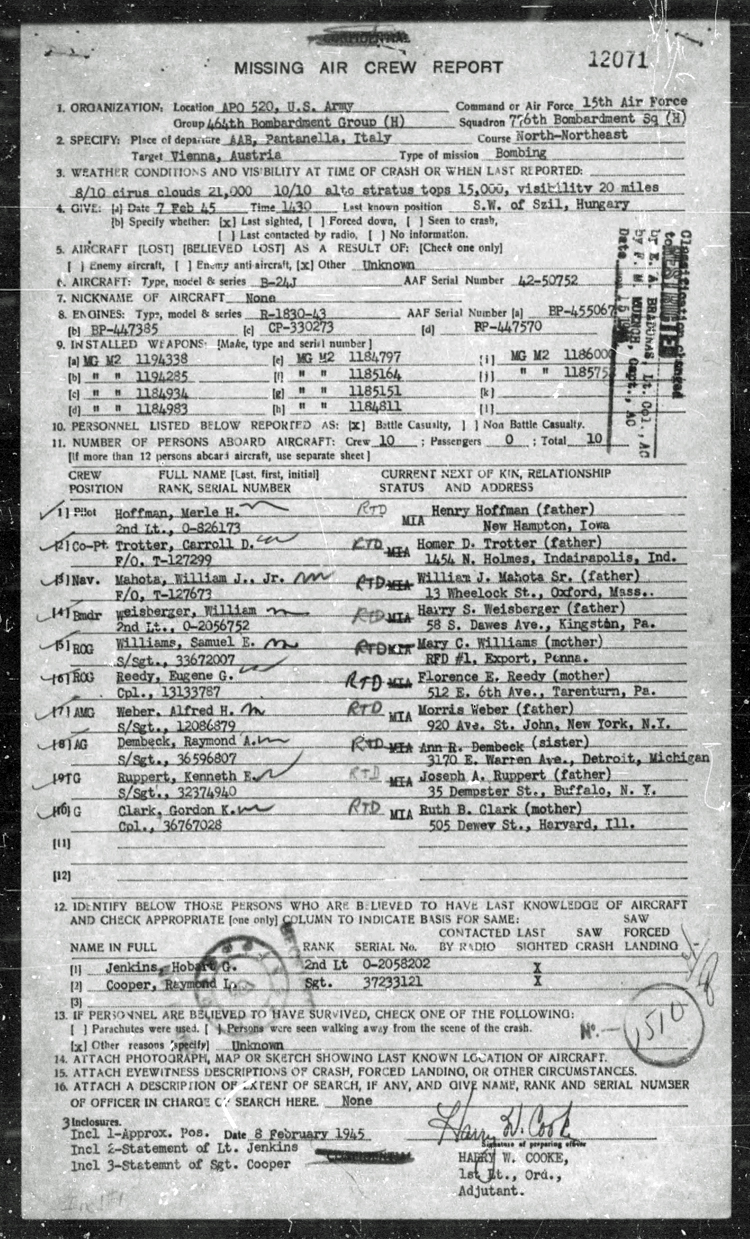 CONFIDENTIAL
12071
MISSING AIR CREW REPORT
1. ORGANIZATION: Location APO 520, U.S. Army Command or Air Force 15th Air Force
Group 464th Bombardment Group (H) Squadron 776th Bombardment Sq (H)
2. SPECIFY: Place of departure AAB, Pantanella, Italy Course North-Northeast
Target Vienna, Austria Type of mission Bombing
3. WEATHER CONDITIONS AND VISIBILITY AT TIME OF CRASH OR WHEN LAST REPORTED:
8/10 cirus clouds 21,000 10/10 alto stratus tops 15,000, visibility 20 miles
4. GIVE: [a] Date 7 Feb 45 Time 1430 Last known position S.W. of Szil, Hungary
[b] Specify whether: [x] Last sighted, [ ] Forced down, [ ] Seen to crash,
[ ] Last contacted by radio, [ ] No information.
5. AIRCRAFT [LOST] [BELIEVED LOST] AS A RESULT OF: [Check one only]
[ ] Enemy aircraft, [ ] Enemy anti-aircraft, [x] Other Unknown
6. AIRCRAFT: Type, model & series B-24J AAF Serial Number 42-50752
7. NICKNAME OF AIRCRAFT None
8. ENGINES: Type, model & series R-1830-43 AAF Serial Number [a] BP-455067
[b] BP-447385 [c] CP-330273 [d] BP-447570
9. INSTALLED WEAPONS: [Make, type and serial number]
[a] MG M2 1194338 [e] MG M2 1184797 [i] MG M2 1186000
[b] " " 1194285 [f] " " 1185164 [j] " " 118575
[c] " " 1184934 [g] " " 1185151 [k]
[d] " " 1184983 [h] " " 1184811 [l]
10. PERSONNEL LISTED BELOW REPORTED AS: [x] Battle Casualty, [ ] Non Battle Casualty.
11. NUMBER OF PERSONS ABOARD AIRCRAFT: Crew 10 ; Passengers 0 ; Total 10
[If more than 12 persons aboard aircraft, use separate sheet]
CREW FULL NAME [Last, first, initial] CURRENT NEXT OF KIN, RELATIONSHIP
POSITION RANK, SERIAL NUMBER STATUS AND ADDRESS
[1] Pilot Hoffman, Merle H. RTD MIA Henry Hoffman (father)
2nd Lt., O-826173 New Hampton, Iowa
[2] Co-Pt. Trotter, Carroll D. RTD MIA Homer D. Trotter (father)
F/O, T-127299 1454 N. Holmes, Indairapolis, Ind.
[3] Nav. Mahota, William J., Jr. RTD MIA William J. Mahota Sr. (father)
F/O, T-127673 13 Wheelock St., Oxford, Mass.
[4] Bmdr weisberger, William RTD MIA Harry S. Weisberger (father)
2nd Lt., O-2056752 58 S. Dawes Ave., Kingston, Pa.
[5] ROG Williams, Samuel E. RTD MIA Mary C. Williams (mother)
S/Sgt., 33672007 RFD #1, Export, Penna.
[6] ROG Reedy, Eugene G. RTD MIA Florence E. Reedy (mother)
Cpl., 13133787 512 E. 6th Ave., Tarenturn, Pa.
[7] AMG Weber. Alfred H. RTD MIA Morris Weber (father)
S/Sgt., 12086879 920 Ave. St. John, New York, N.Y.
[8] AG Dembeck, Raymond A. RTD MIA Ann R. Dembeck (sister)
S/Sgt., 36596807 3170 E. Warren Ave., Detroit, Michigan
[9] TG Ruppert, Kenneth E. RTD MIA Joseph A. Ruppert (father)
S/Sgt., 32374940 35 Dempster St., Buffalo, N. Y.
[10] G Clark, Gordon K. RTD MIA Ruth B. Clark (mother)
Cpl., 36767028 505 Dewey St., Harvard, Ill.
[11]
[12]
12. IDENTIFY BELOW THOSE PERSONS WHO ARE BELIEVED TO HAVE LAST KNOWLEDGE OF AIRCRAFT
AND CHECK APPROPRIATE [one only] COLUMN TO INDICATE BASIS FOR SAME: SAW
CONTACTED LAST SAW FORCED
NAME IN FULL RANK SERIAL No. BY RADIO SIGHTED CRASH LANDING
[1] Jenkins, Hobart G. 2nd Lt O-2058202 X
[2] Cooper, Raymond L. Sgt. 37233121 X
[3]
13. IF PERSONNEL ARE BELIEVED TO HAVE SURVIVED, CHECK ONE OF THE FOLLOWING:
[ ] Parachutes were used. [ ] Persons were seen walking away from the scene of the crash.
[x] Other reasons [specify] Unknown
No. — 1510
14. ATTACH PHOTOGRAPH, MAP OR SKETCH SHOWING LAST KNOWN LOCATION OF AIRCRAFT.
15. ATTACH EYEWITNESS DESCRIPTIONS OF CRASH, FORCED LANDING, OR OTHER CIRCUMSTANCES.
16. ATTACH A DESCRIPTION OF EXTENT OF SEARCH, IF ANY, AND GIVE NAME, RANK AND SERIAL NUMBER
OF OFFICER IN CHARGE OF SEARCH HERE. None
3 Inclosures.
Incl 1-Approx. Pos. Date 8 February 1945
Incl 2-Statement of Lt. Jenkins
Incl 3-Statemnt of Sgt. Cooper
CONFIDENTIAL
Harry W. Cooke
Signature of preparing officer
HARRY W. COOKE,
1st Lt., Ord.,
Adjutant.
Classification changed
to RESTRICTED
by E. A. BRADUNAS Lt. Col., AC
by F. M. MUENCH, Capt., AC
Date